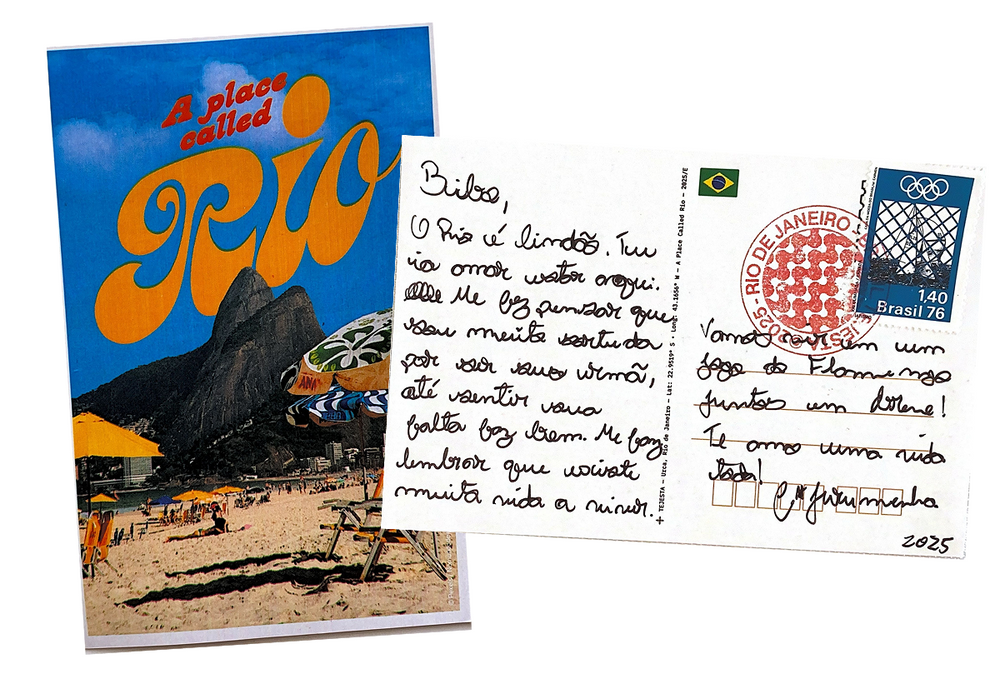 A place
called
Rio
O Rio é lindão. Tu
ia amar estar aqui.
Me fez pensar que
sou muito sortuda
por ser sua irmã,
até sentir sua
falta faz bem. Me faz
lembrar que existe
muita vida a viver.
TEJESTA — Urca, Rio de Janeiro — Lat: 22.9519° S • Long: 43.1656° W — A Place Called Rio — 2025/E
RIO DE JANEIRO
2025
1,40
Brasil 76
Vamos ir em um
jogo do Flamengo
juntos um
Te amo uma vida
toda!
Jurumenha
2025